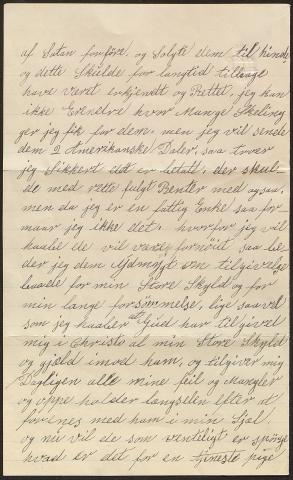 af Satan forføre, og Solgte dem til hende
og dette Skulde for langtid tilbage
have veret erkjendt og Rettet, jeg kan
ikke Erendre hvor Mange Skeling
jeg fik for dem, men jeg vil sende
dem 2 Amerikanske Daler, saa troer
jeg Sikkert det er betalt, der skul-
de med rette fulgt Renter med ogsaa,
men da jeg er en fattig Enke saa for-
maar jeg ikke det, hvorfor jeg vil
haabe de vil være fornøiet saa be
der jeg dem Ydmygt om tilgivelse
baade for min Store Skyld og for
min lange forsømmelse, lige saa vel
som jeg haaber at Gud har tilgivet
mig i Christo al min Store Skyld
og gjæld imod ham, og tilgiver mig
Dagligen alle mine feil og Mangler
og oppe holder længselen efter at
forenes med ham i min Sjæl
og nu vil de som venteligt er spørge
hvad er det for en tjeneste pige